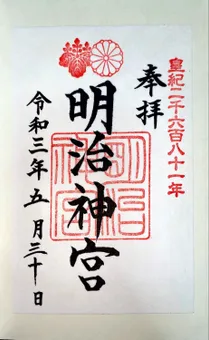 皇紀二千六百八十一年
奉拝
明治神宮
明治神宮
令和三年五月三十日